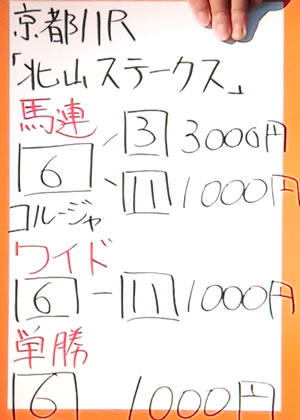 京都11R
「北山ステークス」
馬連
3 3000円
6
11 1000円
コルージャ
ワイド
6-11 1000円
単勝
6 1000円